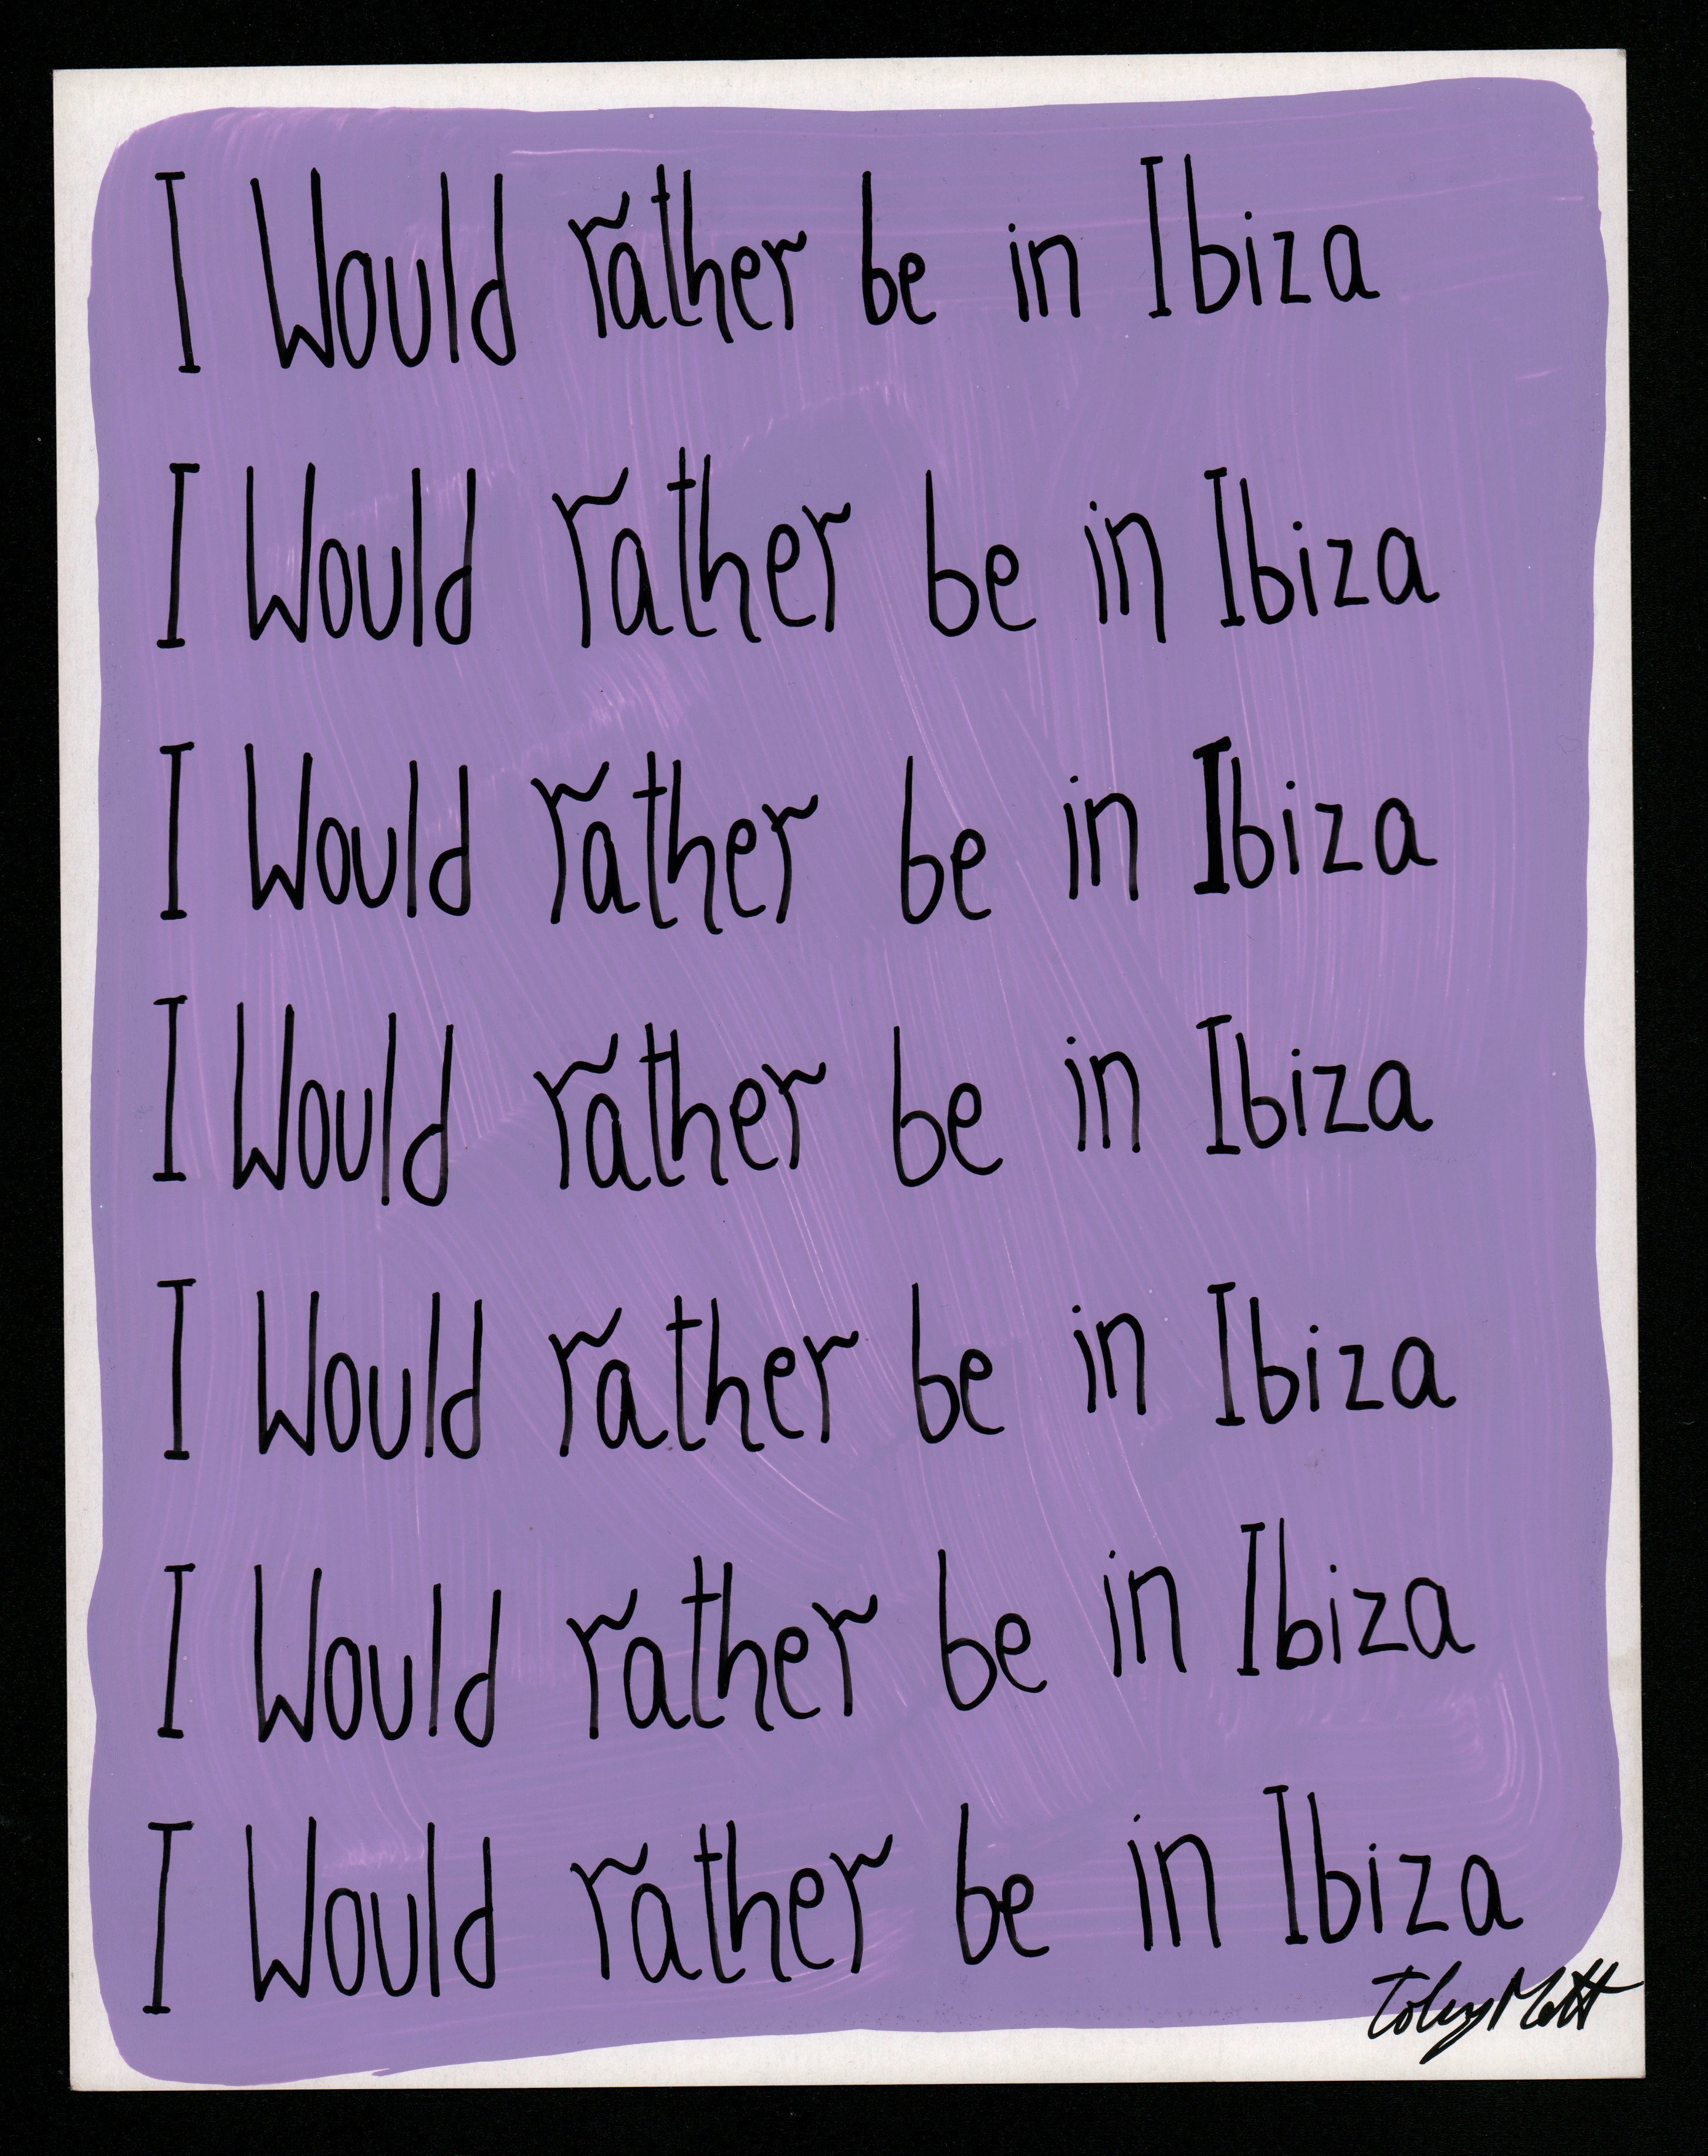 I Would rather be in Ibiza
I Would rather be in Ibiza
I Would rather be in Ibiza
I Would rather be in Ibiza
I Would rather be in Ibiza
I Would rather be in Ibiza
I Would rather be in Ibiza
Toby Mott